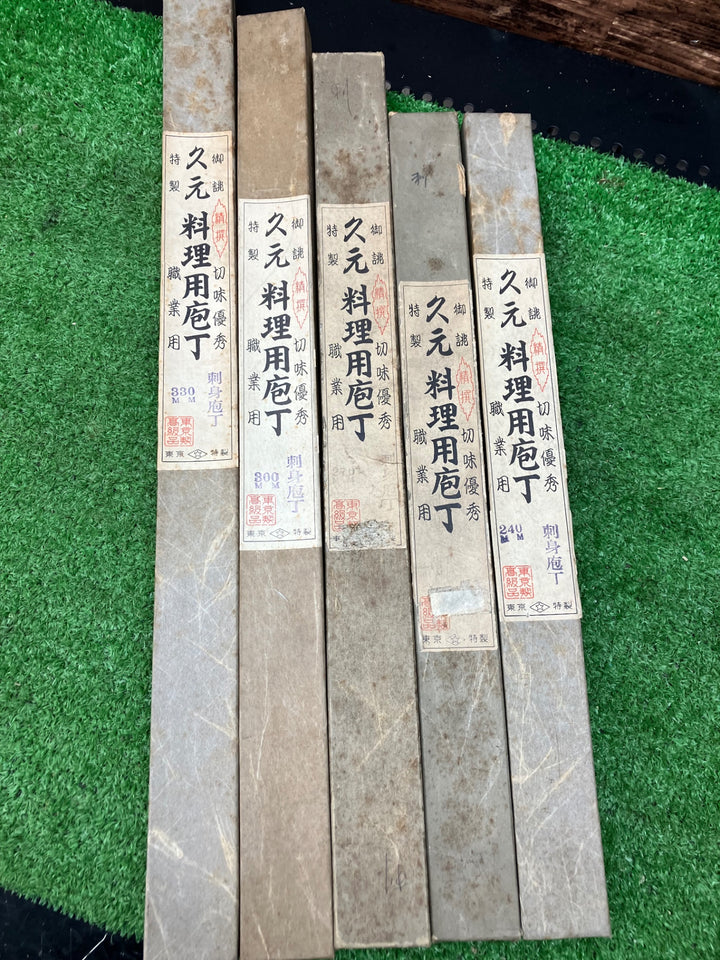 御誂
特製
久元
精撰
料理用庖丁
切味優秀
職業用
330
MM
刺身庖丁
東京製
高級品
東京 特製
御誂
特製
久元
精撰
料理用庖丁
切味優秀
職業用
300
MM
刺身庖丁
東京製
高級品
東京 特製
御誂
特製
久元
精撰
料理用庖丁
切味優秀
職業用
丁
東京製
高級品
御誂
特製
久元
精撰
料理用庖丁
切味優秀
職業用
東京 特製
御誂
特製
久元
精撰
料理用庖丁
切味優秀
職業用
240
MM
刺身庖丁
東京製
高級品
東京 特製